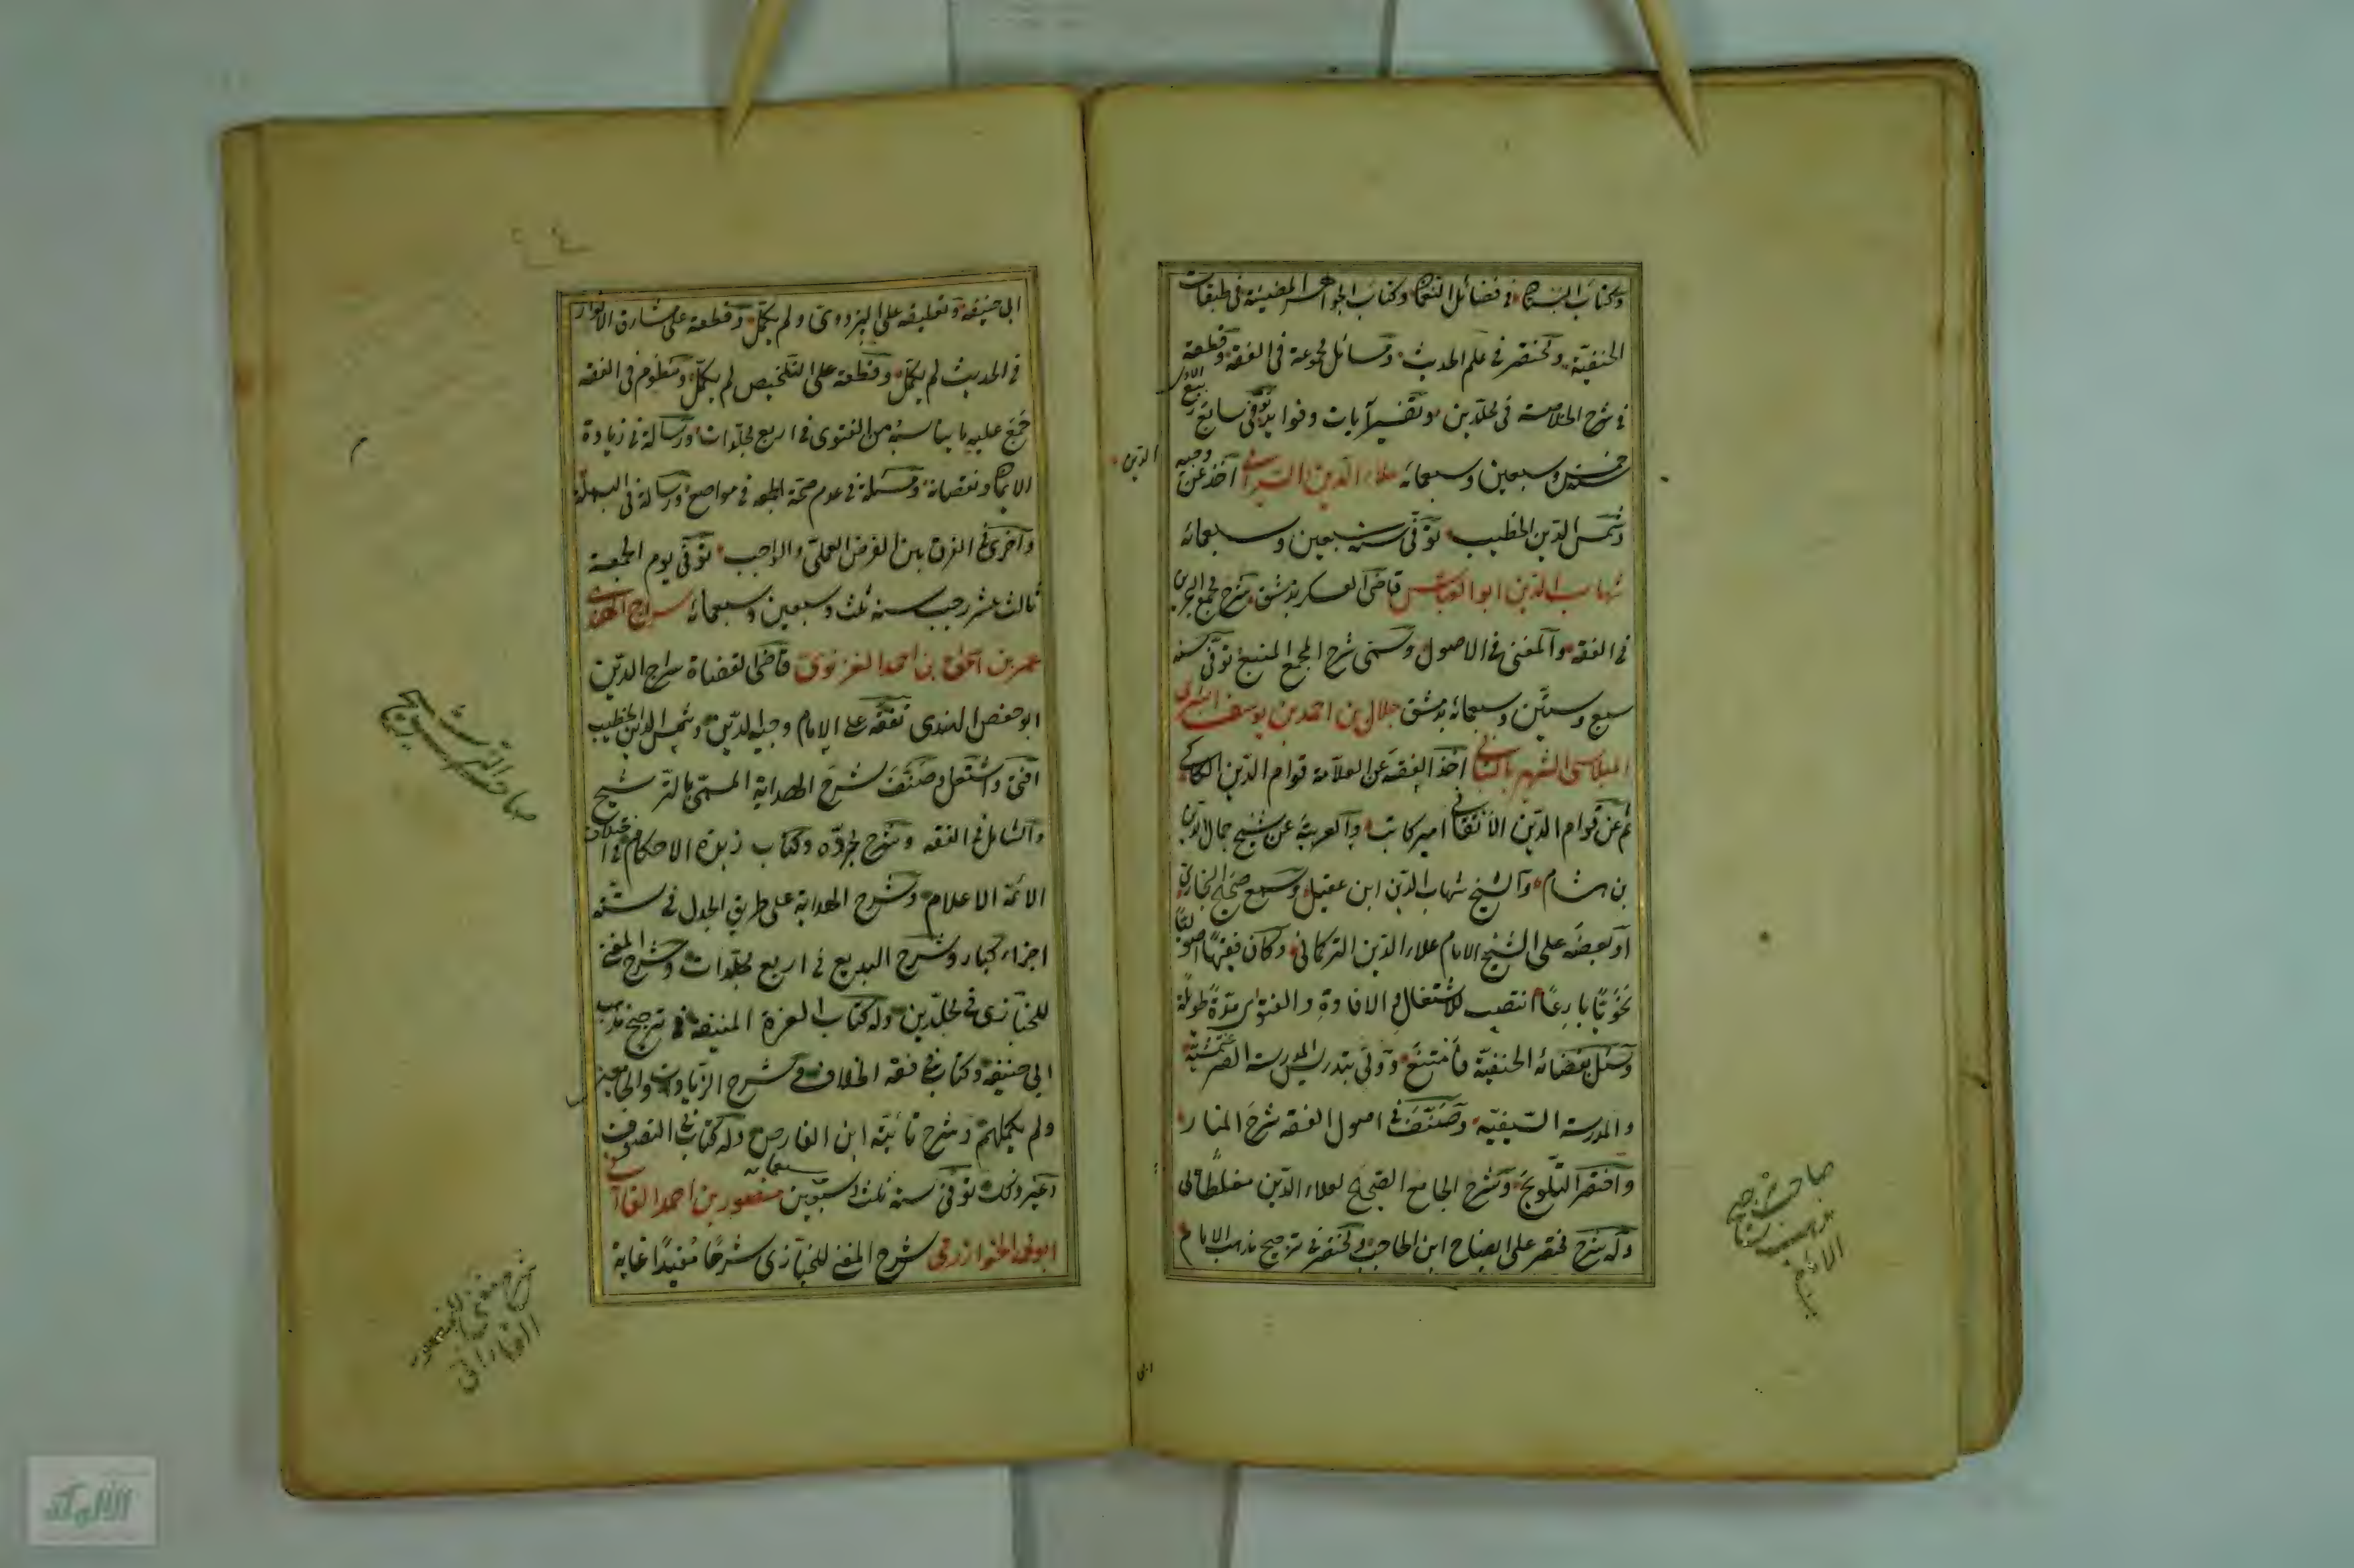 وكتاب البستان في فضائل النعمان وكتاب الجواهر المضيئة في طبقات
الحنفيّة ومختصر في علم الحديث ومسائل مجموعة في الفقه وقطعة
في شرح الخلاصة في مجلدين وتفسير آيات وفوائد توفي سابع ربيع الاول
سنة خمس وسبعين وسبعمائه علاء الدين السيرامي اخذ عن وجيه
الدين
وشمس الدين الخطيب توفّي سنه سبعين وسبعمائه
شهاب الدين ابو العباس قاضي العسكر بدمشق شرح مجمع البحرين
في الفقه والمغنى في الاصول وسمّى شرح المجمع المنبع توفّي سنه
سبع وستّين وسبعمائه بدمشق جلال بن احمد بن يوسف التيزي
الشهير بالتباني اخذ الفقه عن العلاّمة قوام الدّين الكاكي
ثم عن قوام الدّين الاتقاني امير كاتب والعربيّة عن شيخ جمال الدين
بن هشام والشيخ شهاب الدّين ابن عقيل وسمع صحيح البخاري
او بعضه على الشيخ الامام علاء الدّين التركماني وكان فقيهًا اصوليًا
نحويًّا بارعًا انتصب للاشتغال والافادة والفتوى مدّة طويلة
وسئل بقضائه الحنفيّة فامتنع وولّي بتدريس المدرسة الصرغتمشيّة
والمدرسة السيفيّة وصنّف في اصول الفقه شرح المنار
واختصر التلويح وشرح الجامع الصحيح لعلاء الدّين مغلطاي
وله شرح مختصر على ايضاح ابن الحاجب ومختصر في ترجيح مذهب الامام
صاحب ترجيح
مذهب
ابى
ابي حنيفه وتعليقه على البزدوىّ ولم يكمّل وقطعة على مشارق الانوار
في الحديث لم يكمّل وقطعة على التلخيص لم يكمّل ومنظوم في الفقه
جمع عليه ما يناسبه من الفتوى في اربع مجلّدات ورسالة في زيادة
الايمان ونقصانه ومسئلة في عدم صحّة الجمعه في مواضع ورسالة في البسملة
واخرى في الفرق بين الفرض العملىّ والواجب توفّي يوم الجمعة
ثالث عشر رجب سنه ثلث وسبعين وسبعمائه سراج الهندي
عمر بن اسحق بن احمد الغزنوىّ قاضي القضاة سراج الدّين
ابو حفص الهندى تفقّه على الامام وجيه الدّين وشمس الدين الخطيب
افتى واشتغل وصنّف شرح الهداية المسمّى بالترشيح
والشامل في الفقه وشرح جرّده وكتاب زبدة الاحكام في اختلاف
الائمّة الاعلام وشرح الهداية على طريق الجدل في ستّه
اجزاء كبار وشرح البديع في اربع مجلّدات وشرح المغنى
للخبّازى في مجلّدين وله كتاب الغرّة المنيفة في ترجيح مذهب
ابي حنيفه وكتاب في فقه الخلاف وشرح الزيادات والجامعين
ولم يكملهم وشرح تائيّة ابن الفارض وله كتاب في التصوّف
وغير ذلك توفّي سنه ثلث وسبعين سبعمايه منصور بن احمد القاآنى
ابو محمد الخوارزمي شرح المغنى للخبّازى شرحًا مفيدًا غاية
صاحب الترشيح
شرح مغنى لمنصور
القاآنى
الألوكة